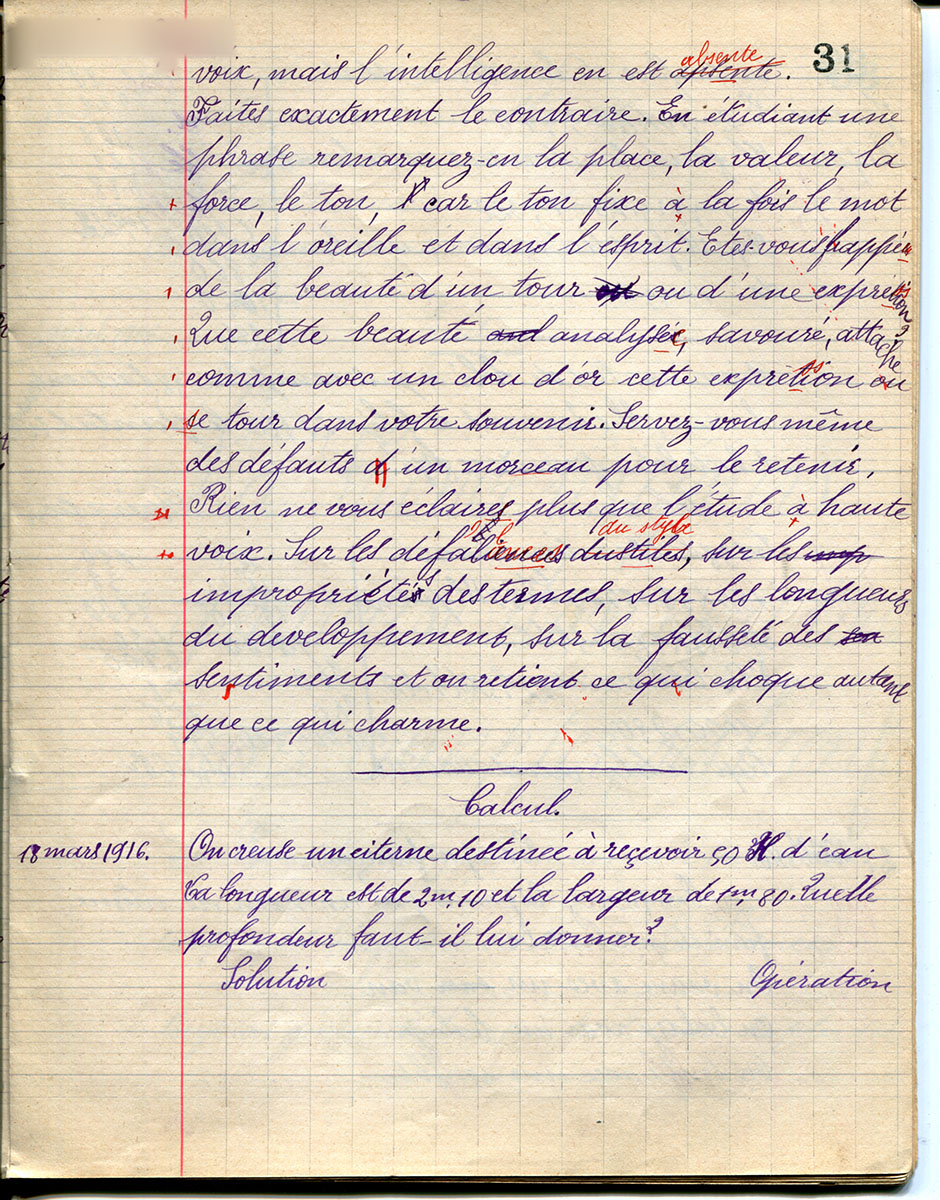 31
absente
voix, mais l'intelligence en est apsente.
Faites exactement le contraire. En étudiant une
phrase remarquez-en la place, la valeur, la
force, le ton, car le ton fixe à la fois le mot
dans l'oreille et dans l'esprit. Etes-vous frappé
de la beauté d'un tour ou d'une expression?
Que cette beauté analysée, savouré, attache
comme avec un clou d'or cette expression ou
se tour dans votre souvenir. Servez-vous même
des défauts d'un morceau pour le retenir,
Rien ne vous éclaires plus que l'étude à haute
du style
voix. Sur les dustiles, sur les
impropriétés des termes, sur les longueurs
du developpement, sur la fausseté des
sentiments et on retient ce qui choque autant
que ce qui charme.
Calcul.
18 mars 1916. On creuse un citerne destinée à reçevoir 50 H. d'éau
La longueur est de 2m,10 et la largeur de 1m,80. Quelle
profondeur faut-il lui donner?
Solution Opération